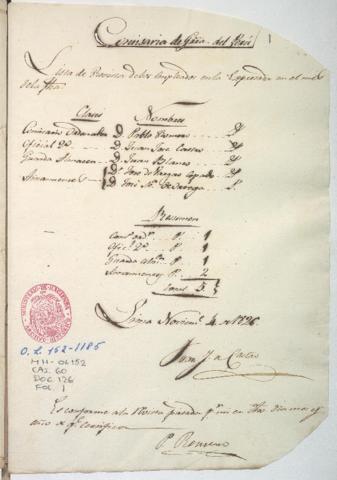 Comisaria de Gría. del Perú
Lista de Revista delos Empleados en la Espresada en el mes
dela fha.
Clases Nombres
Comisario Ordenador D. Pablo Romero P.
Oficial 2º D. Juan José Castro P.
Guarda Almacen D. Juan Blanco P.
Amanuenses D. José de Vargas P.
D. José Mª P.
Resumen
Comº ordr. P. 1
Ofic. 2º P. 1
Guarda alm. P. 1
Amanuenses P. 2
Total 5
Lima Noviemᵉ 4 de 1826
Juan J. Castro
Es conforme ala Revista pasada pʳ mi en dho dia mes y
año de qᵉ certifico
P. Romero
O.L. 152-1185
MH-OL152
CAJ. 60
DOC. 126
FOL. 1